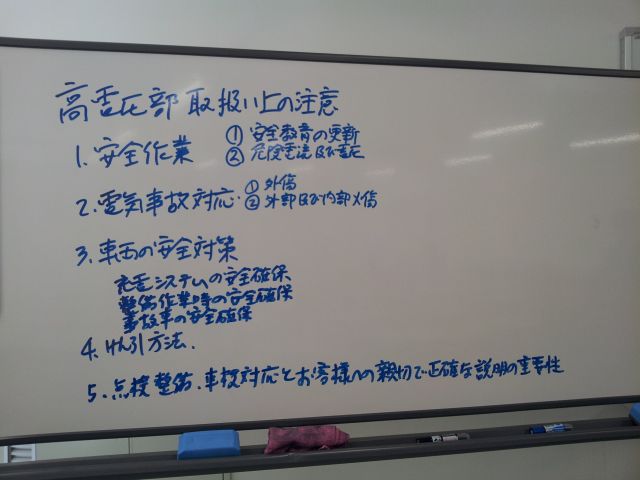 高電圧部取扱い上の注意
1. 安全作業 ① 安全教育の更新
② 危険電流及び電圧
2. 電気事故対応. ① 外傷
② 外部及び内部火傷
3. 車両の安全対策
充電システムの安全確保
整備作業時の安全確保
事故車の安全確保
4. けん引方法.
5. 点検整備、事故対応とお客様への親切で正確な説明の重要性